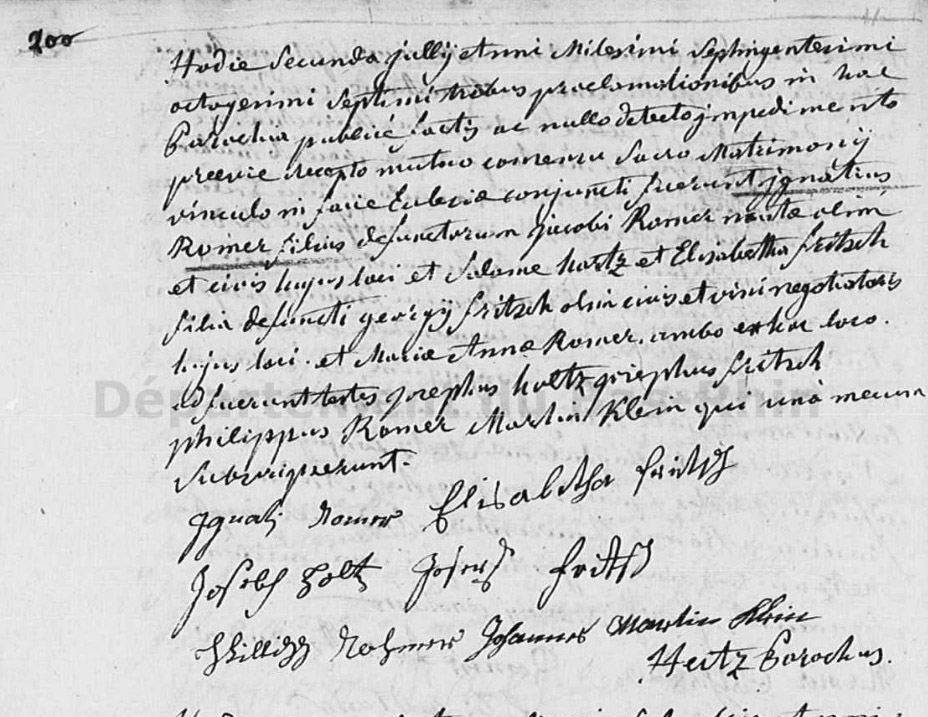 200
Hodie Secunda jullij Anni Milesimi Septingentesimi
octogesimi Septimi tribus proclamationibus in hac
Parochia publicè factis ac nullo detecto jmpedimento
praevie recepto mutuo consensu Sacro Matrimonij
vinculo in facie Ecclesiae conjuncti fuerunt jgnatius
Romer filius defunctorum jacobi Romer nautae olim
et civis hujus loci et Salome hartz et Elisabetha fritsch
filia defuncti georgij fritsch olim civis et vini negotiatoris
hujus loci. et Mariae Annae Romer. ambo ex hoc loco.
adfuerunt testes josephus holtz josephus fritsch
philippus Romer Martin Klein qui unà mecum
Subscripserunt.
Jgnati Romer Elisabetha fritsch
Joseph Holtz Joseph fritsch
Phillipp Rohmer Johannes Martin Klein
Hertz Parochus.
Département du Bas-Rhin